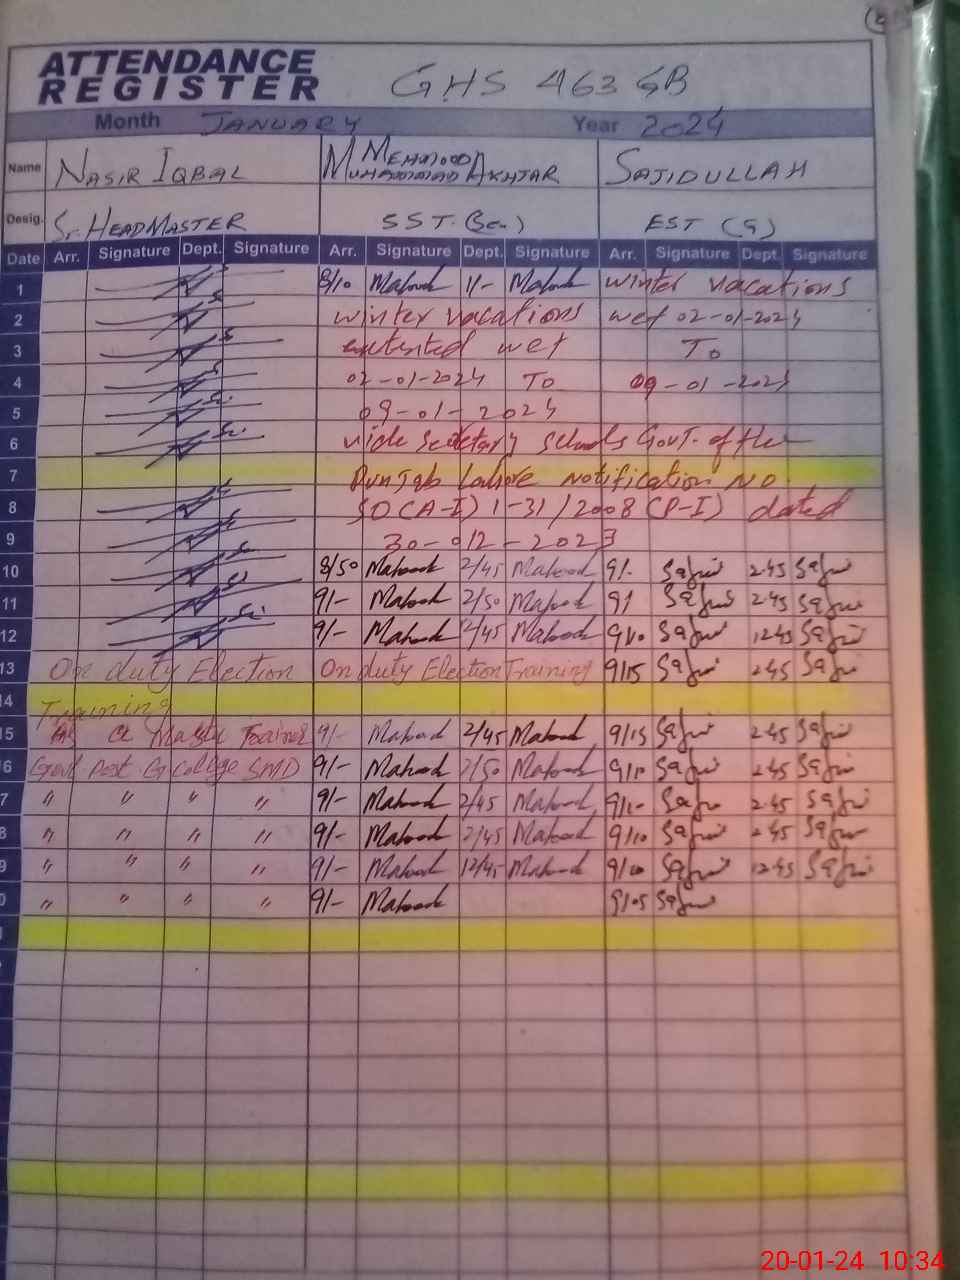 ATTENDANCE
REGISTER GHS 463 GB
Month JANUARY Year 2024
Name NASIR IQBAL MEHMOOD MUHAMMAD AKHTAR SAJIDULLAH
Desig. Sr. HEADMASTER SST. (Sc.) EST (G)
Date Arr. Signature Dept. Signature Arr. Signature Dept. Signature Arr. Signature Dept. Signature
1 8/10 Mahmood 11/- Mahmood winter vacations
2 winter vacations wef 02-01-2024
3 wef To
4 02-01-2024 To 09-01-2024
5 09-01-2024
6 vide Secretary Schools Govt. of the
7 Punjab Lahore Notification NO.
8 SO(A-I) 1-31/2008 (P-I) dated
9 30-012-2023
10 8/50 Mahmood 2/45 Mahmood 9/- 2.45
11 9/- Mahmood 2/50 Mahmood 9/ 2.45
12 9/- Mahmood 12/45 Mahmood 9/10 12.45
13 On duty Election On duty Election Training 9/15 2.45
14 Training
15 As a Master Trainer 9/- Mahmood 2/45 Mahmood 9/15 2.45
6 Govt Post G College SMD 9/- Mahmood 2/50 Mahmood 9/10 2.45
7 " " " " 9/- Mahmood 2/45 Mahmood 2.45
8 " " " " 9/- Mahmood 2/45 Mahmood 9/10 2.45
9 " " " " 9/- Mahmood 12/45 Mahmood 9/10 12.45
0 " " " " 9/- Mahmood 9/05
20-01-24 10:34